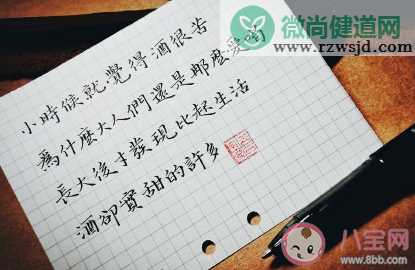 微尚健道网
www.rzwsjd.com
小時候就覺得酒很苦
為什麼大人們還是那麼愛喝
長大後才發現比起生活
酒卻實甜的許多
八宝网
www.8bb.com